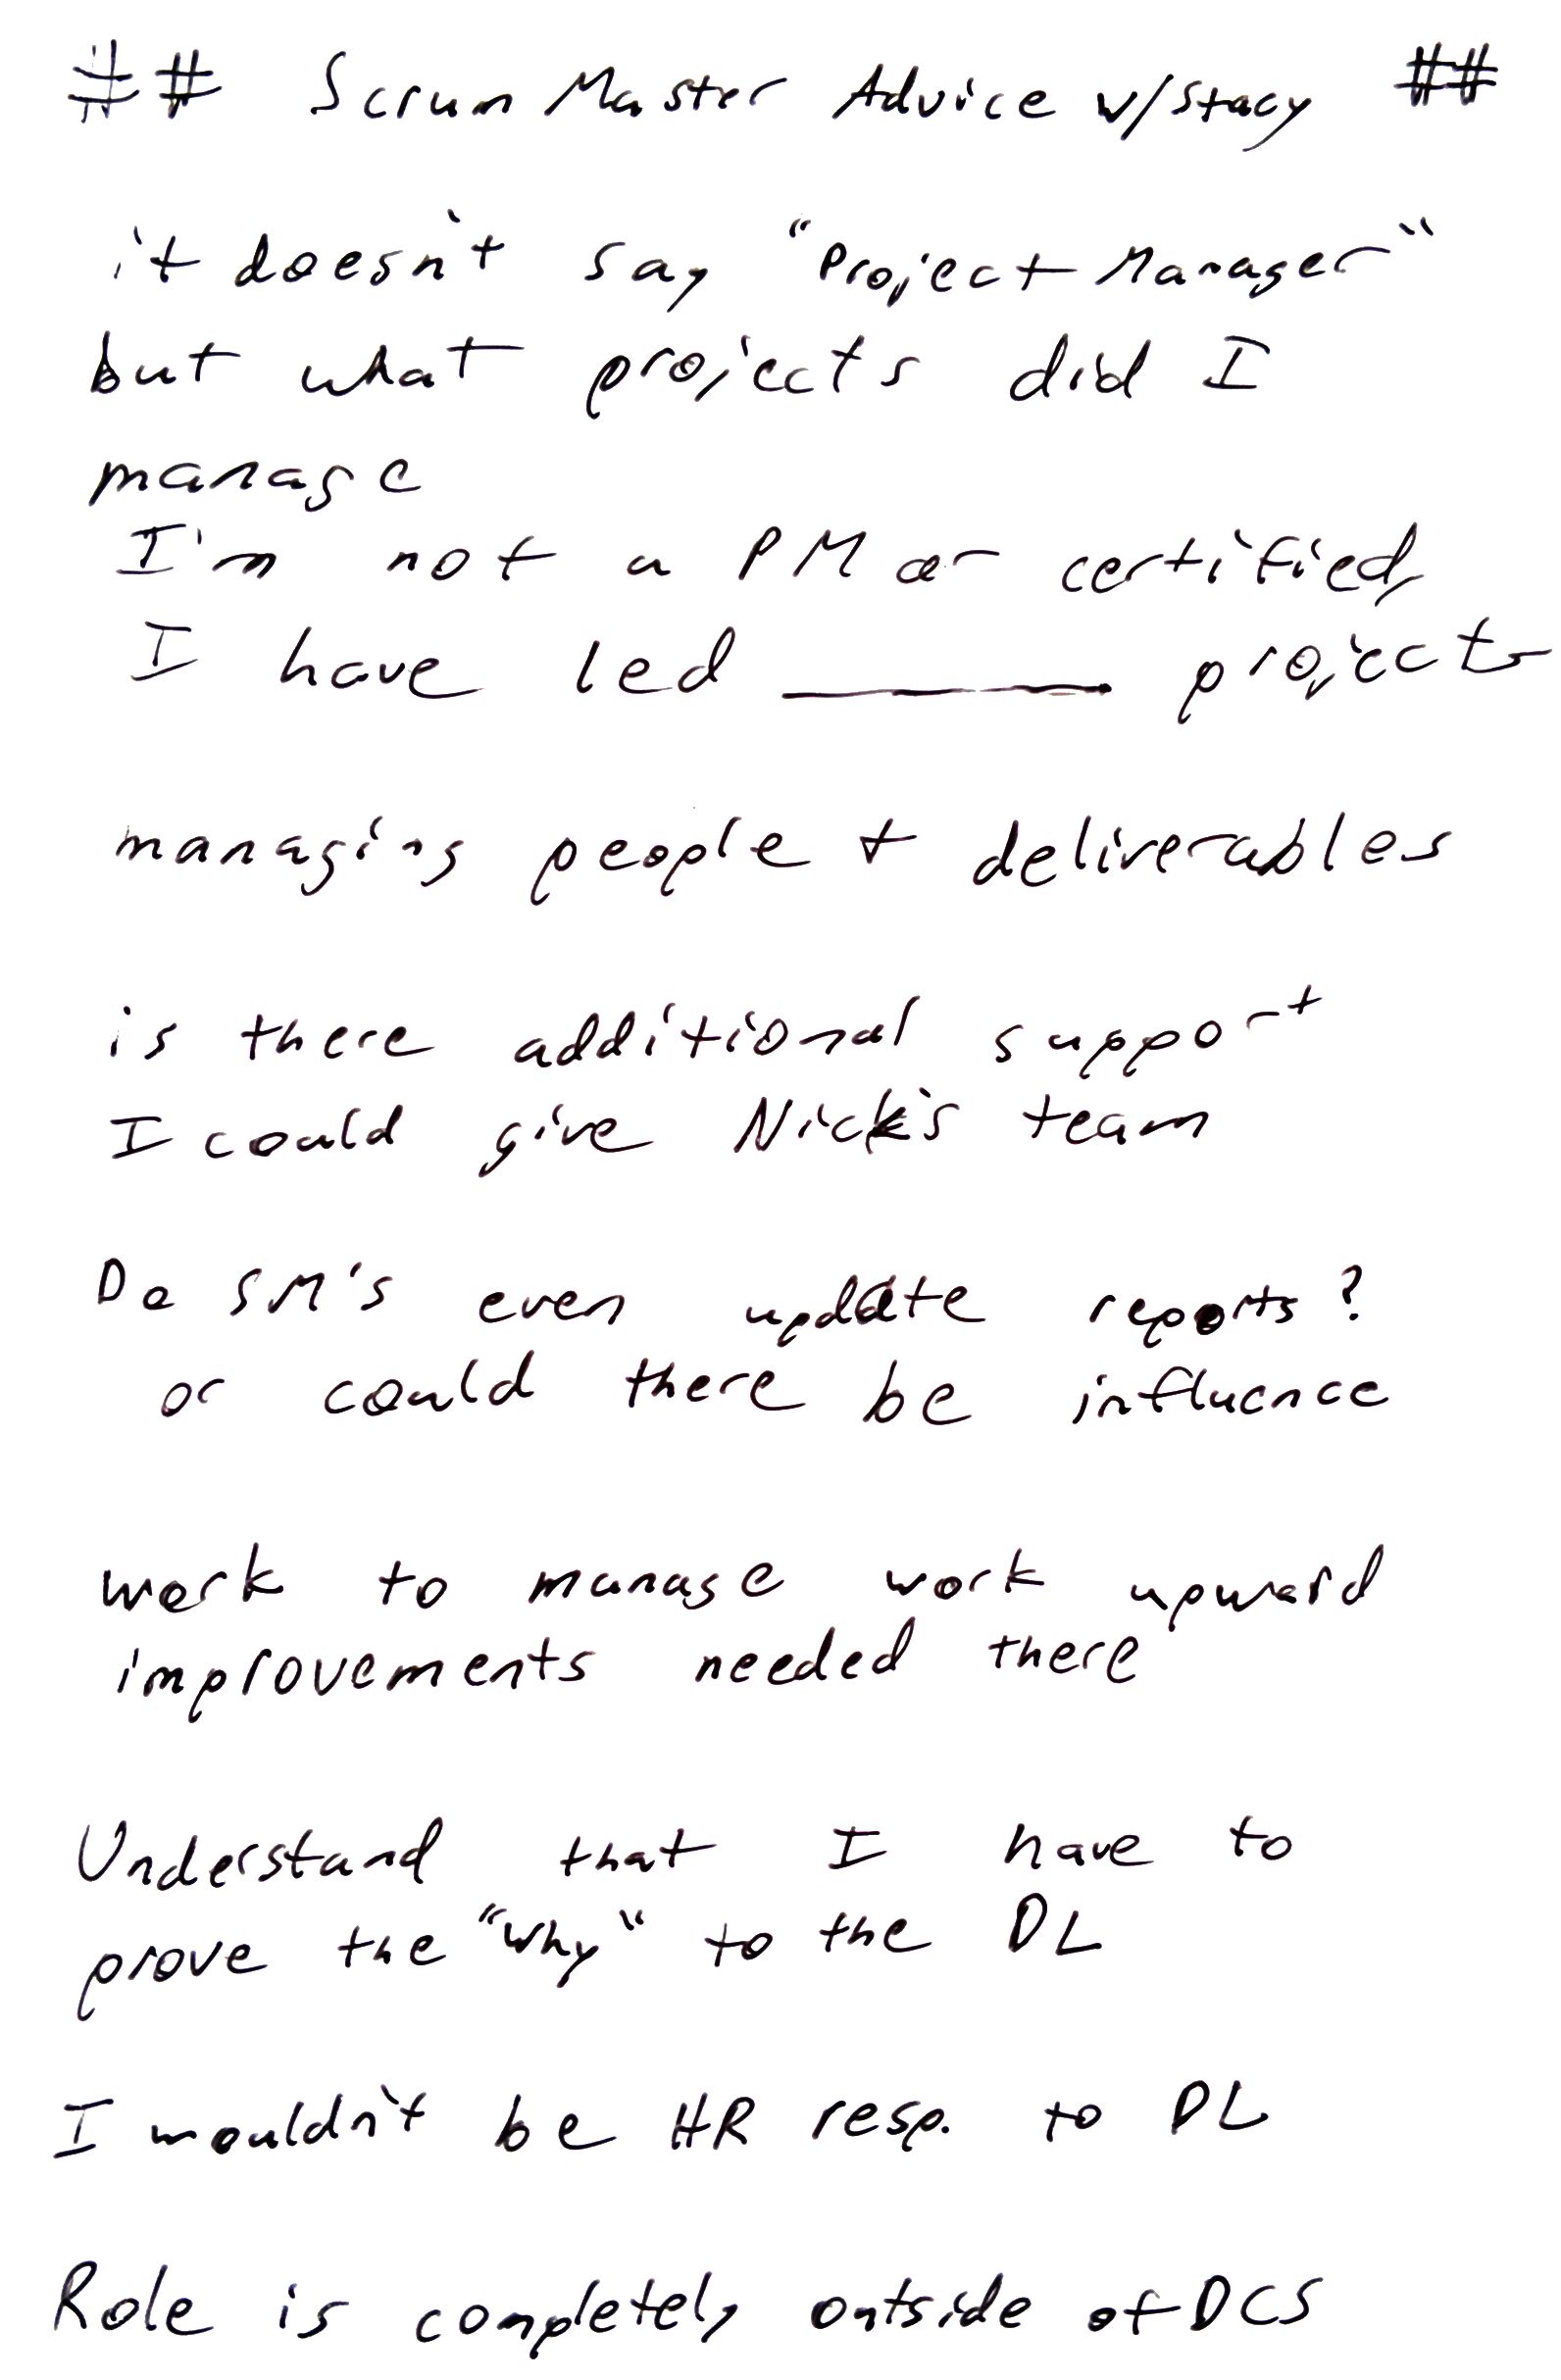 ## Scrum Master Advice w/Stacy ##
it doesn't say "Project Manager"
but what projects did I
manage
I'm not a PM or certified,
I have led ________ projects
managing people + deliverables
is there additional support
I could give Nick's team
Do SM's even update reports?
or could there be influence
work to manage work upward
improvements needed there
Understand that I have to
prove the "why" to the DL
I wouldn't be HR resp. to DL
Role is completely outside of DCS